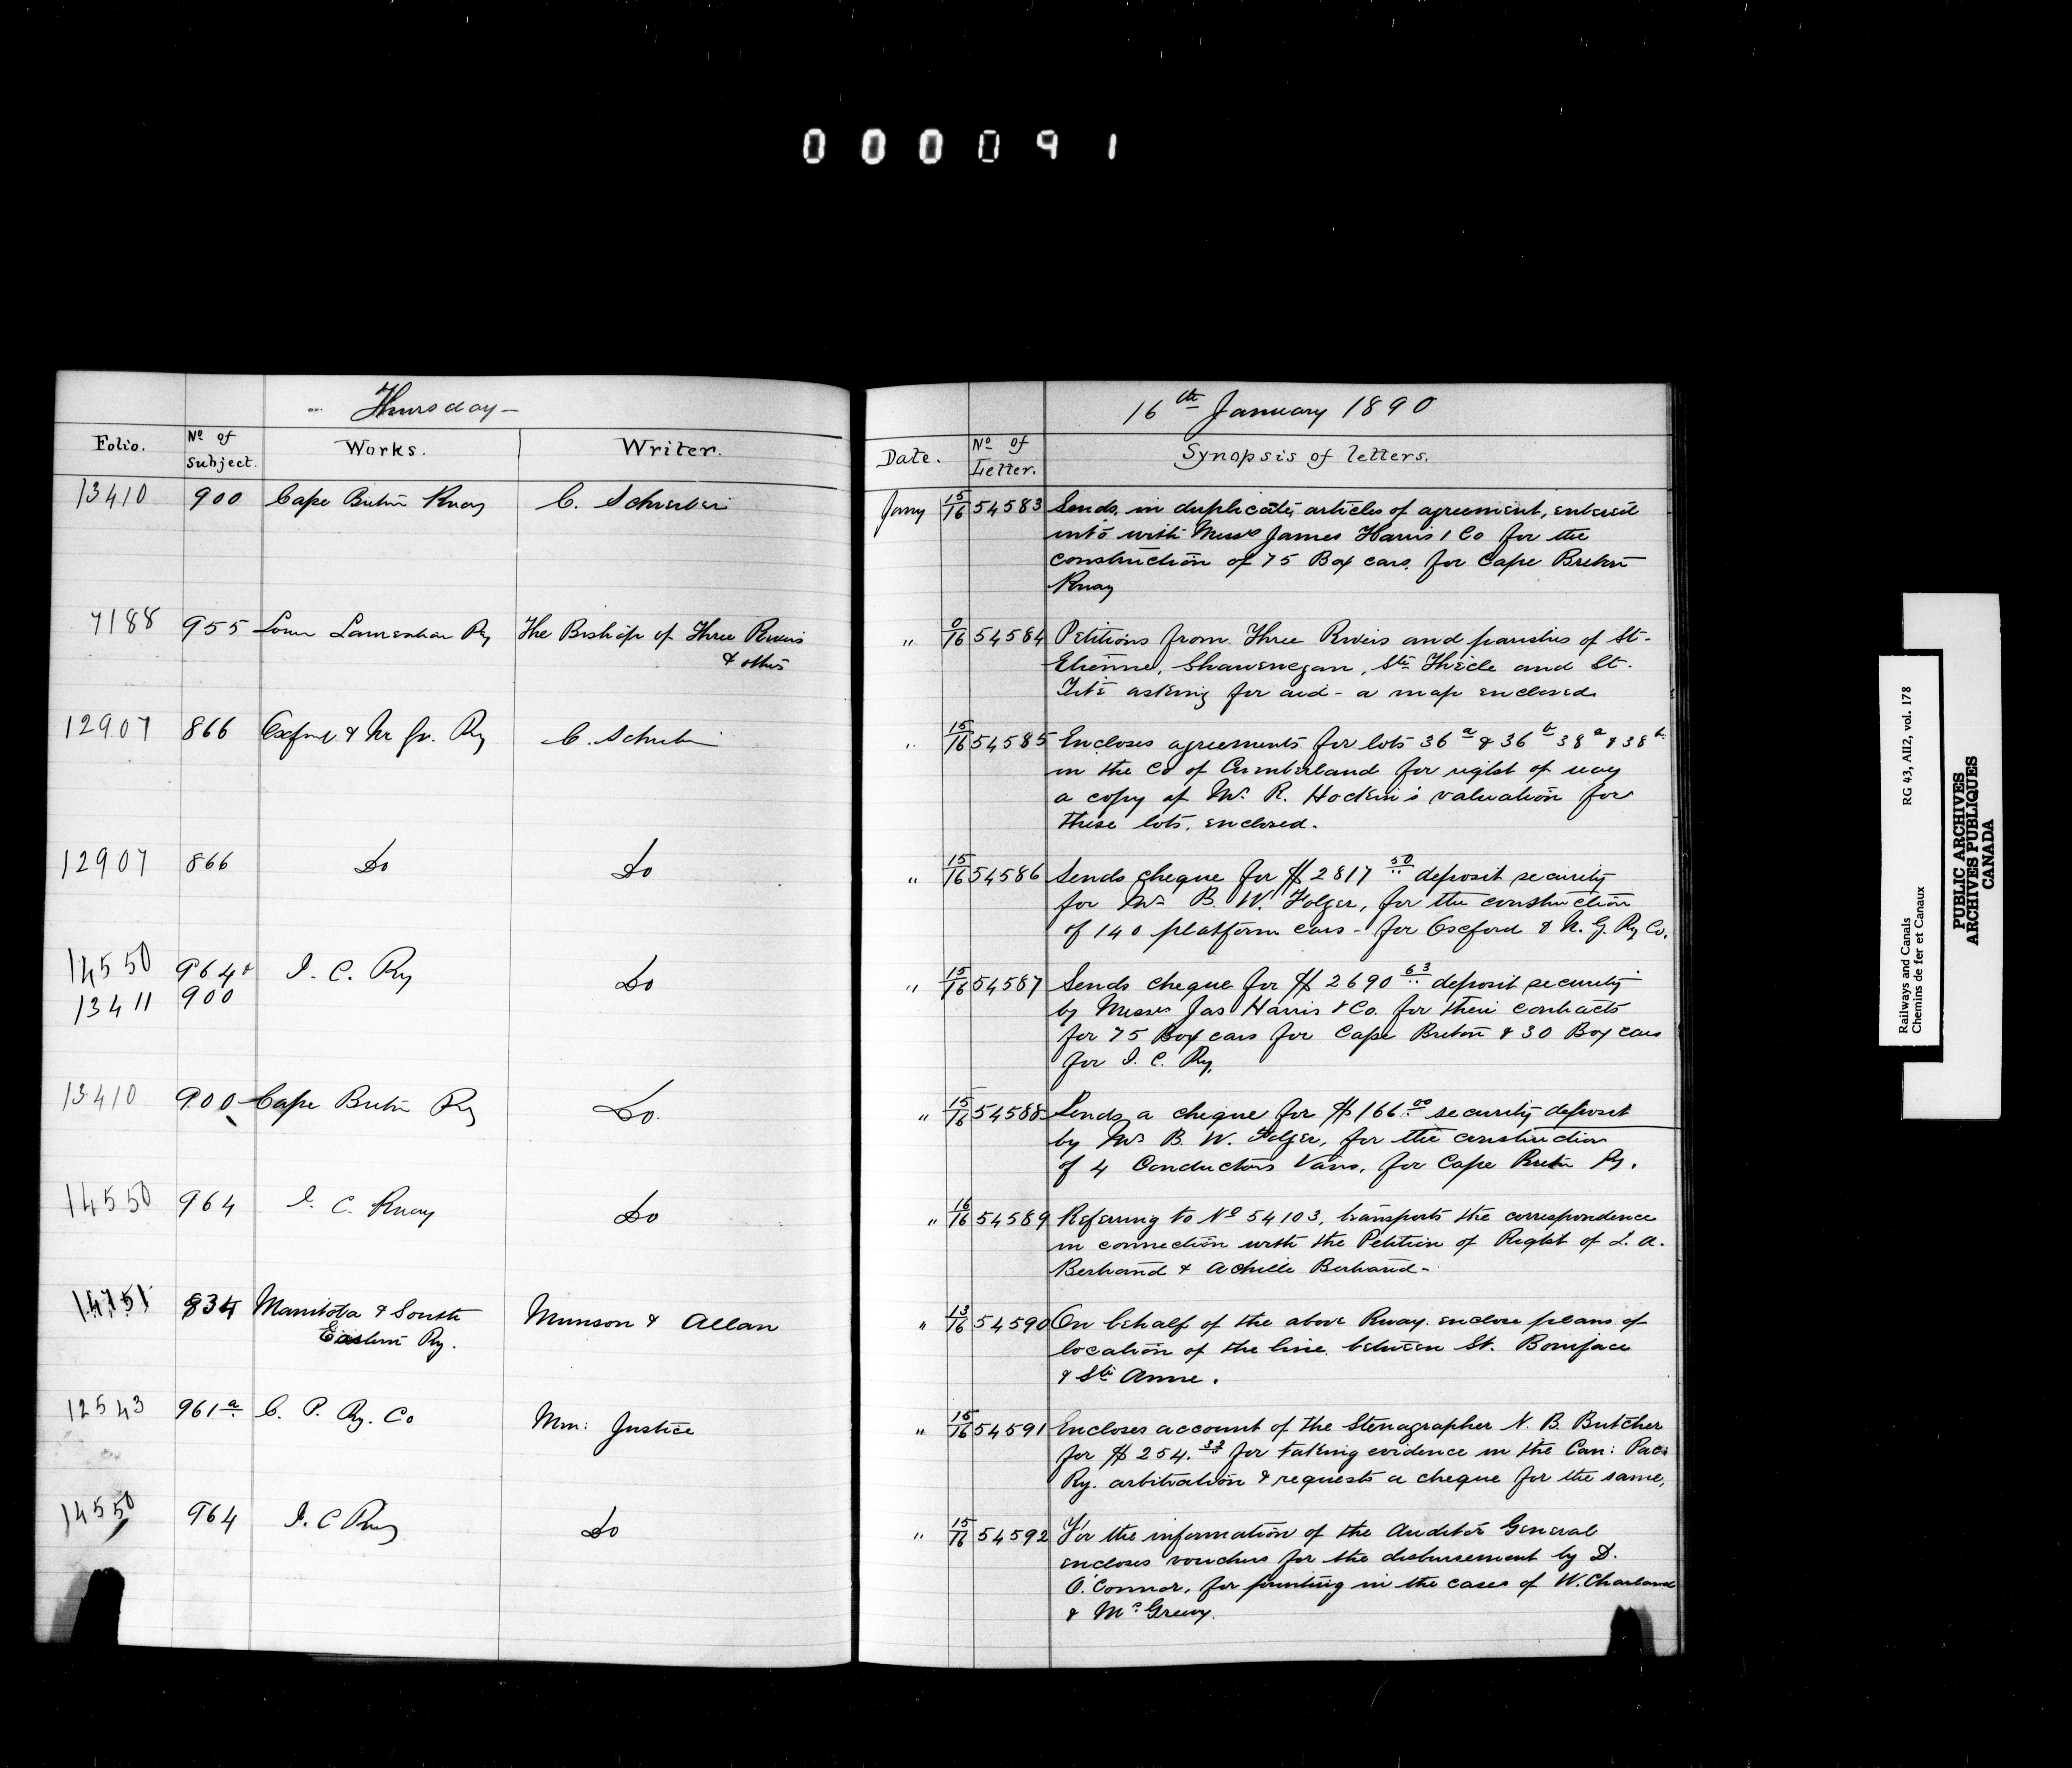 000091
Thursday -
16th January 1890
Folio. No of Subject. Works. Writer. Date. No of Letter. Synopsis of letters.
13410 900 Cape Breton Rway C. Schreiber Jany 15/16 54583 Sends, in duplicate, articles of agreement, entered
into with Messrs James Harris & Co for the
construction of 75 Box cars, for Cape Breton
Rway
7188 955 Lower Laurentian Ry The Bishop of Three Rivers " 0/16 54584 Petitions from Three Rivers and parishes of St-
& others Etienne, Shawenegan, Ste Thècle and St.
Tite asking for aid - a map enclosed
12907 866 Oxford & N Gw. Ry C. Schreiber " 15/16 54585 Encloses agreements for lots 36a & 36b 38a & 38b
in the Co of Cumberland for right of way
a copy of Mr. R. Hockin's valuation for
these lots, enclosed.
12907 866 Do Do " 15/16 54586 Sends cheque for $2817 50 deposit security
for Mr B. W. Folger, for the construction
of 140 platform cars - for Oxford & N. G. Ry Co.
14550 964 & I. C. Ry Do " 15/16 54587 Sends cheque for $2690 63 deposit security
13411 900 by Messrs Jas Harris & Co. for their contracts
for 75 Box cars for Cape Breton & 30 Box cars
for I. C. Ry.
13410 900 Cape Breton Ry Do. " 15/16 54588 Sends a cheque for $166.00 security deposit
by Mr B. W. Folger, for the construction
of 4 Conductors Vans, for Cape Breton Ry.
14550 964 I. C. Rway Do " 16/16 54589 Referring to No 54103, transports the correspondence
in connection with the Petition of Right of L. A.
Bertrand & Achille Bertrand -
14751 834 Manitoba & South Munson & Allan " 13/16 54590 On behalf of the above Rway. enclose plans of
Eastern Ry. location of the line, between St. Boniface
& Ste Anne.
12543 961a C. P. Ry. Co Min: Justice " 15/16 54591 Encloses account of the Stenagrapher N. B. Butcher
for $254. for taking evidence in the Can: Pac:
Ry. arbitration & requests a cheque for the same,
14550 964 I. C Rway Do " 15/16 54592 For the information of the Auditor General
encloses vouchers for the disbursement by D.
O'Connor, for printing in the cases of W. Charland
& McGreevy.
Railways and Canals RG 43, AII2, vol. 178
Chemins de fer et Canaux
PUBLIC ARCHIVES
ARCHIVES PUBLIQUES
CANADA